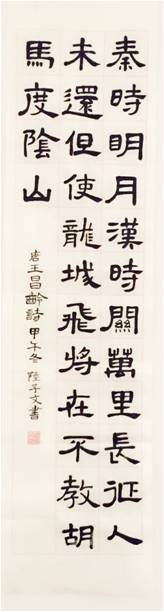 秦時明月漢時關萬里長征人
未還但使龍城飛將在不教胡
馬度陰山
唐王昌齡詩甲午冬陸子文書